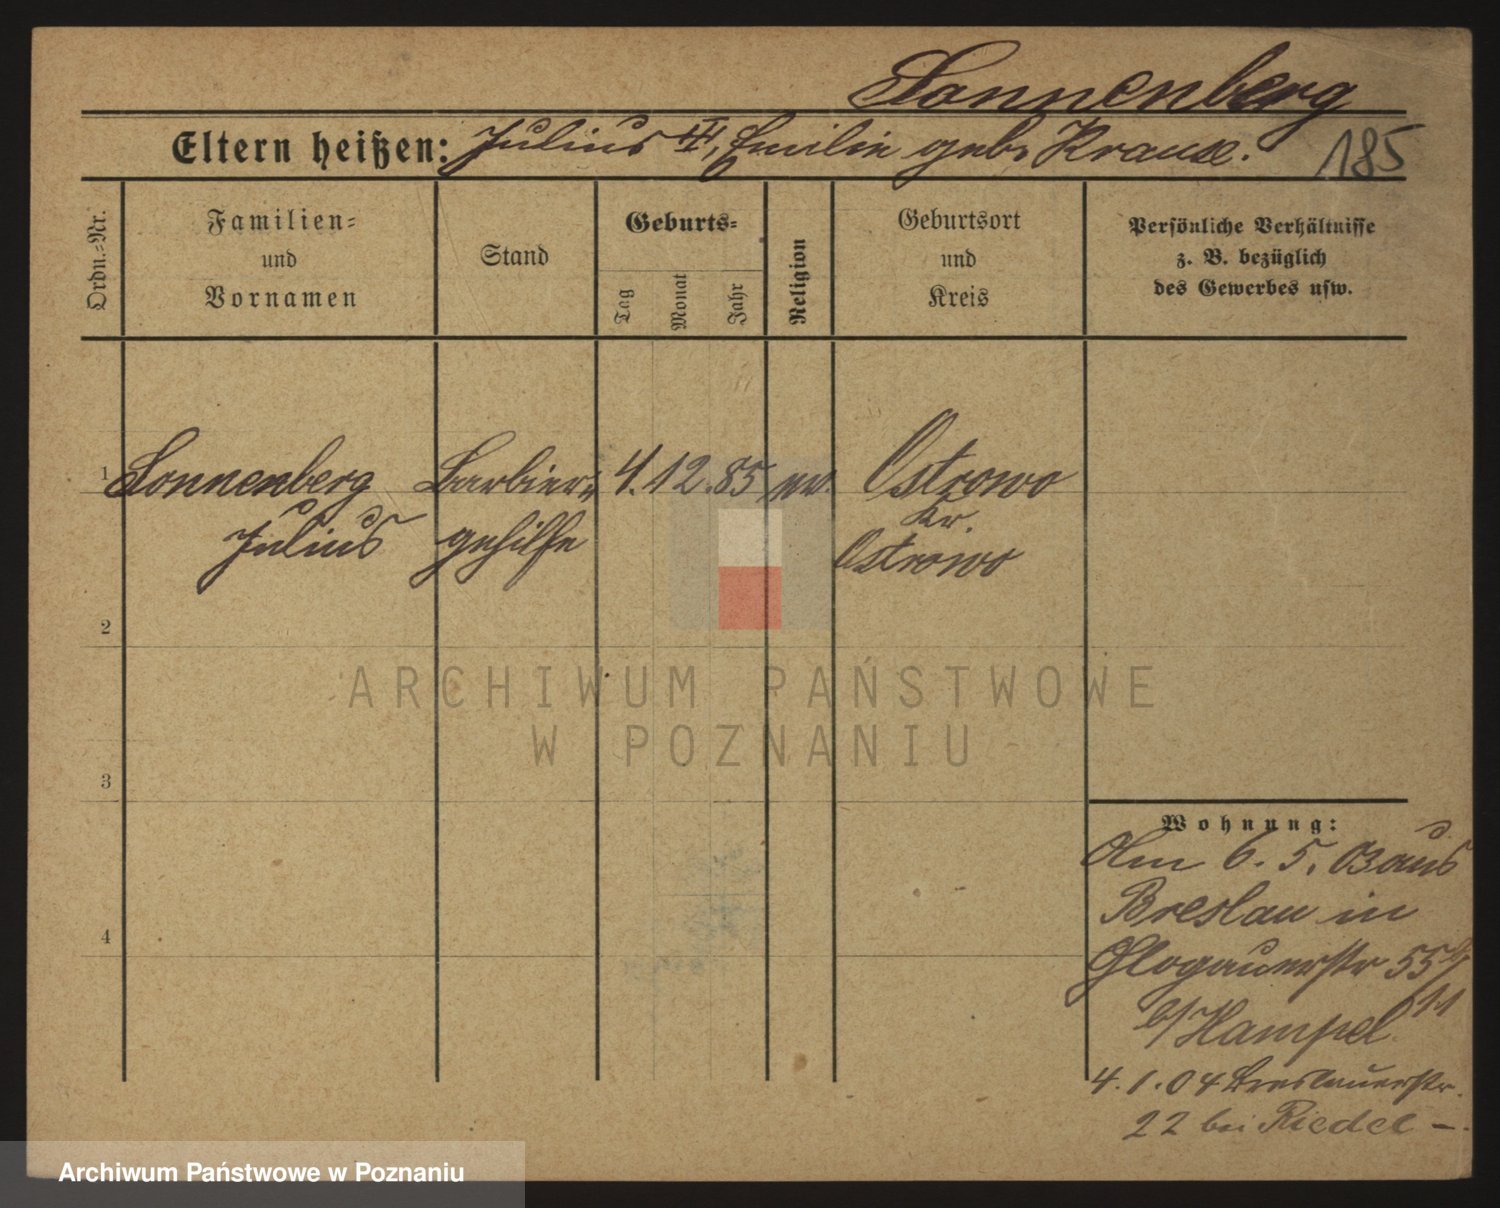 Sonnenberg
Eltern heißen: Julius III, Emilie geb. Krause.
185
Ordn.=Nr.
Familien=
und
Vornamen
Stand
Geburts=
Tag
Monat
Jahr
Religion
Geburtsort
und
Kreis
Persönliche Verhältnisse
z. B. bezüglich
des Gewerbes usw.
1 Sonnenberg Barbier= 4. 12. 85 Ostrowo
Julius gehilfe Kr.
Ostrowo
2
3
4
Wohnung:
Am 6. 5. 03 aus
Breslau in
Glogauerstr 55
b/ Hampel
4. 1. 04 Breslauerstr.
22 bei Riedel –.
ARCHIWUM PAŃSTWOWE
W POZNANIU
Archiwum Państwowe w Poznaniu